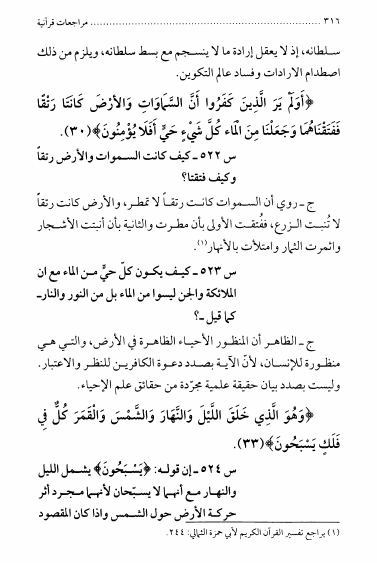 ٣١٦ ........................................................ مراجعات قرآنية
سلطانه، إذ لا يعقل إرادة ما لا ينسجم مع بسط سلطانه، ويلزم من ذلك
اصطدام الارادات وفساد عالم التكوين.
﴿أَوَلَمْ يَرَ الَّذِينَ كَفَرُوا أَنَّ السَّمَاوَاتِ وَالأَرْضَ كَانَتَا رَتْقًا
فَفَتَقْنَاهُمَا وَجَعَلْنَا مِنَ الْمَاء كُلَّ شَيْءٍ حَيٍّ أَفَلَا يُؤْمِنُونَ﴾(٣٠).
س ٥٢٢ ـ كيف كانت السموات والأرض رتقاً
وكيف فتقتا؟
ج ـ روي أن السموات كانت رتقـاً لا تمطـر، والأرض كانت رتقاً
لا تُنبـت الـزرع، ففُتقـت الأولى بأن مطـرت والثانية بأن أنبتت الأشـجار
واثمرت الثمار وامتلأت بالأنهار(١).
س ٥٢٣ ـ كيـف يكـون كلّ حيّ مـن الماء مع ان
الملائكة والجن ليسوا من الماء بل من النور والنارـ
كما قيل ـ؟
ج ـ الظاهر أن المنظـور الأحياء الظاهرة في الأرض، والتـي هـي
منظـورة للإنسـان، لأنّ الآيـة بصـدد دعـوة الكافريـن للنظـر والاعتبار.
وليست بصدد بيان حقيقة علمية مجرّدة من حقائق علم الإحياء.
﴿وَهُوَ الَّذِي خَلَقَ اللَّيْلَ وَالنَّهَارَ وَالشَّمْسَ وَالْقَمَرَ كُلٌّ فِي
فَلَكٍ يَسْبَحُونَ﴾(٣٣).
س ٥٢٤ ـ إن قولـه: ﴿يَسْبَحُونَ﴾ يشـمل الليل
والنهار مع أنهما لا يسبّحان لأنهما مجرد أثر
حركـة الأرض حول الشـمس واذا كان المقصود
(١) يراجع تفسير القرآن الكريم لأبي حمزة الثمالي: ٢٤٤.